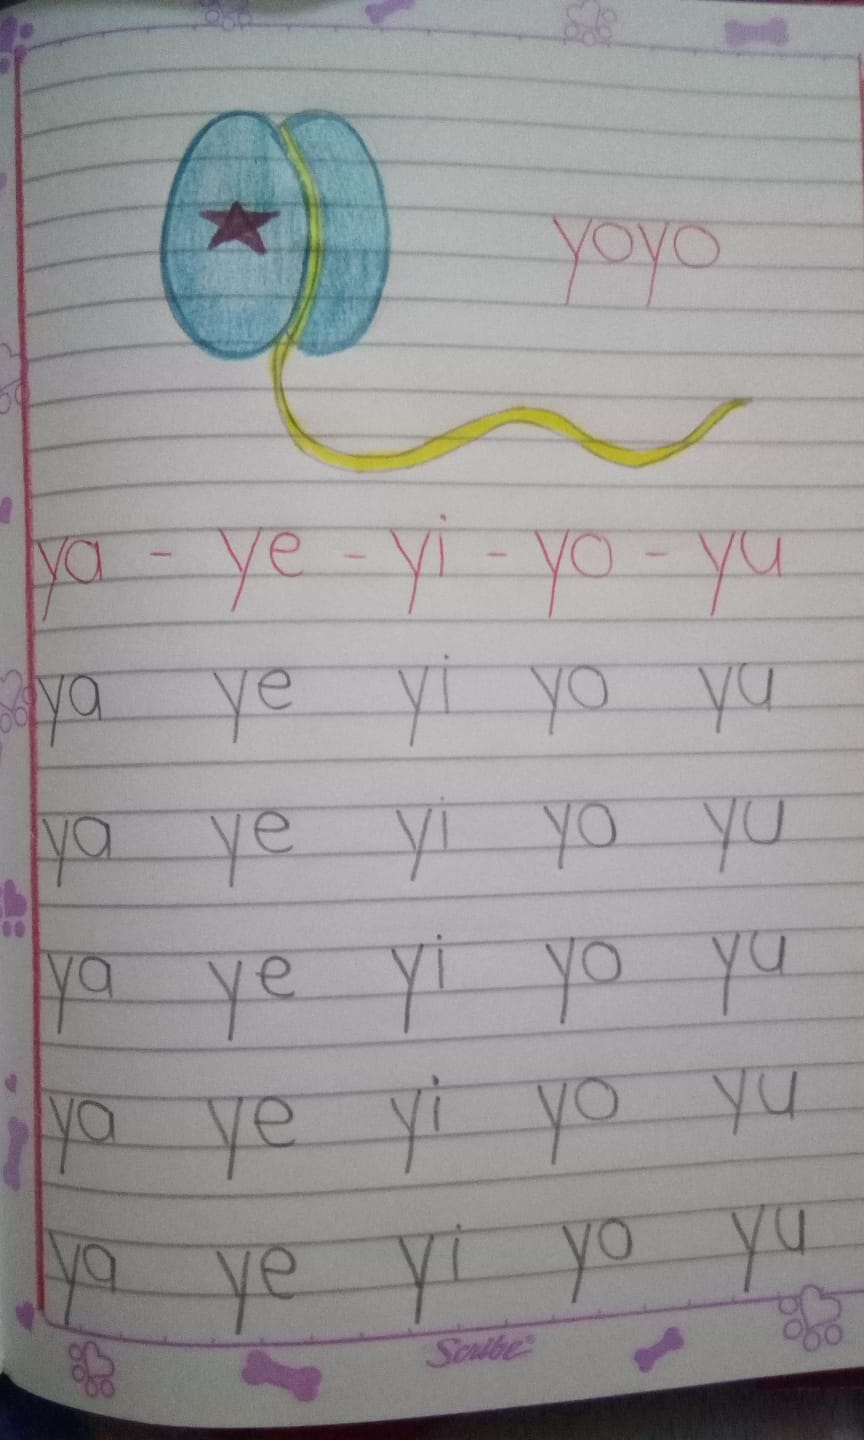 yoyo
ya - ye - yi - yo - yu
ya ye yi yo yu
ya ye yi yo yu
ya ye yi yo yu
ya ye yi yo yu
ya ye yi yo yu
Scribe